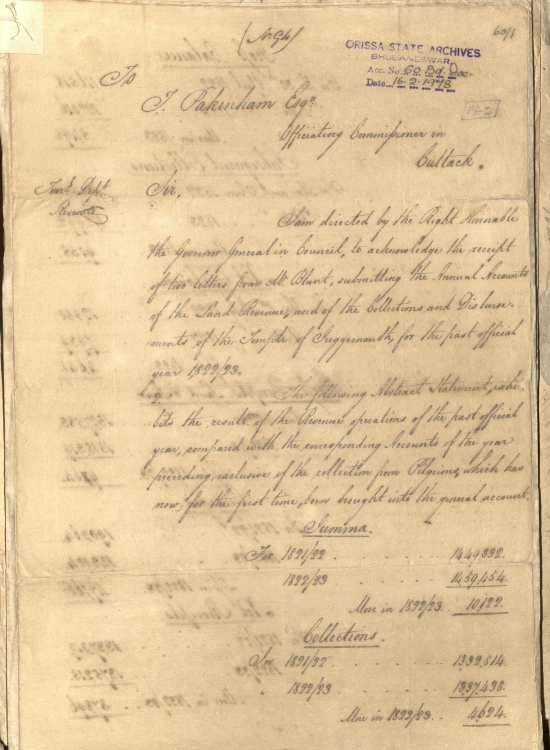 (No 94)
60/1
ORISSA STATE ARCHIVES
BHUBANESWAR
Acc. No. 60 Bd. Doc.
Date 16.2.1978
To
T. Pakenham Esqr.
Officiating Commissioner in
Cuttack.
Terrl. Deptt.
Revenue
Sir,
I am directed by the Right Honorable
the Governor General in Council, to acknowledge the receipt
of two letters from Mr Blunt, submitting the Annual Accounts
of the Land Revenue, and of the Collections and Disburse-
ments of the Temple of Juggernauth, for the past official
year 1822/23.
The following Abstract Statement, exhi-
bits the result of the Revenue operations of the past official
year, compared with the corresponding Accounts of the year
preceding, exclusive of the collection from Pilgrims, which has
now, for the first time, been brought into the general account.
Jumma.
For 1821/22 . . . . 1449332.
1822/23 . . . . 1459454.
More in 1822/23. 10122.
Collections.
For 1821/22 . . . . 1332814.
" 1822/23 . . . . 1337438.
More in 1822/23. 4624.